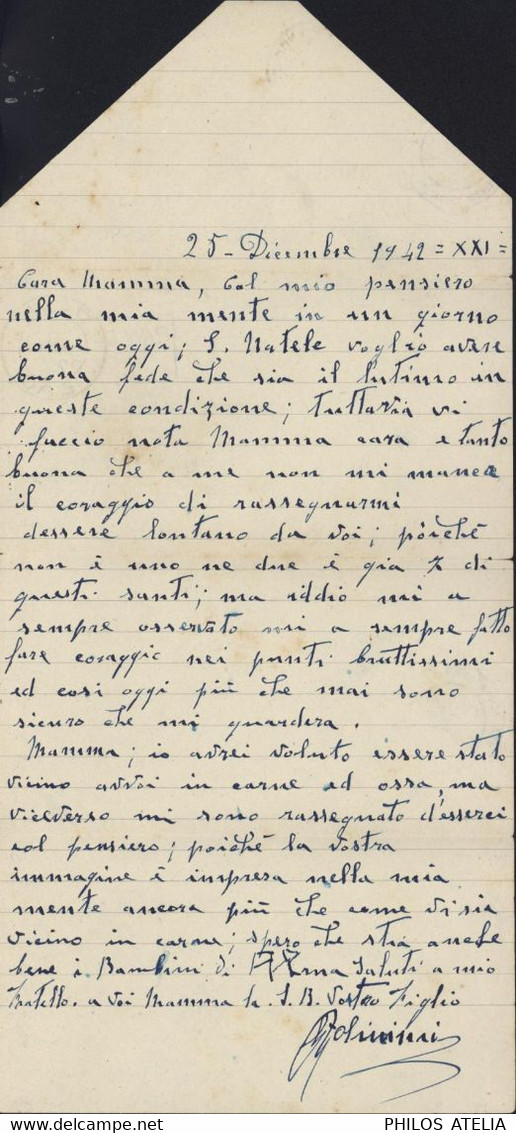 25 - Dicembre 1942 = XXI =
Cara Mamma, Col mio pensiero
nella mia mente in un giorno
come oggi; S. Natele voglio avere
buona fede che sia il lutimo in
queste condizione; tuttavia vi
faccio nota Mamma cara e tanto
buona che a me non mi manca
il coraggio di rassegnarmi
dessere lontano da voi; poiché
non è uno ne due è gia 7 di
questi santi; ma iddio mi a
sempre osservato mi a sempre fatto
fare coraggio nei punti bruttissimi
ed cosi oggi più che mai sono
sicuro che mi guardera.
Mamma; io avrei voluto essere stato
vicino avvoi in carne ed ossa, ma
viceverso mi sono rassegnato d'esserci
col pensiero; poiché la vostra
immagine è impresa nella mia
mente ancora più che come vi sia
vicino in carne; spero che stia anche
bene i Bambini di saluti a mio
Fratello. a voi Mamma la S. B. Vostro Figlio
PHILOS ATELIA